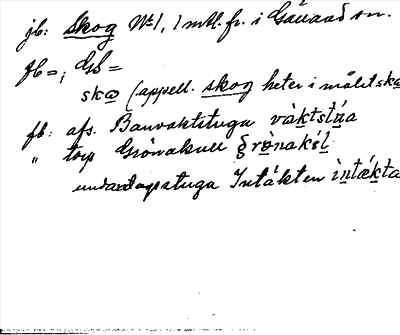 jb: Skog № 1, 1 mtl. fr. i Gäuaad sn.
fb = ; GS =
skω (appell. skog heter i målet skω
fb: afs. Banvaktstuga vàktstúa
" torp Grönakull grö̀nakúl
undantagsstuga Intäkten ìntä́kta